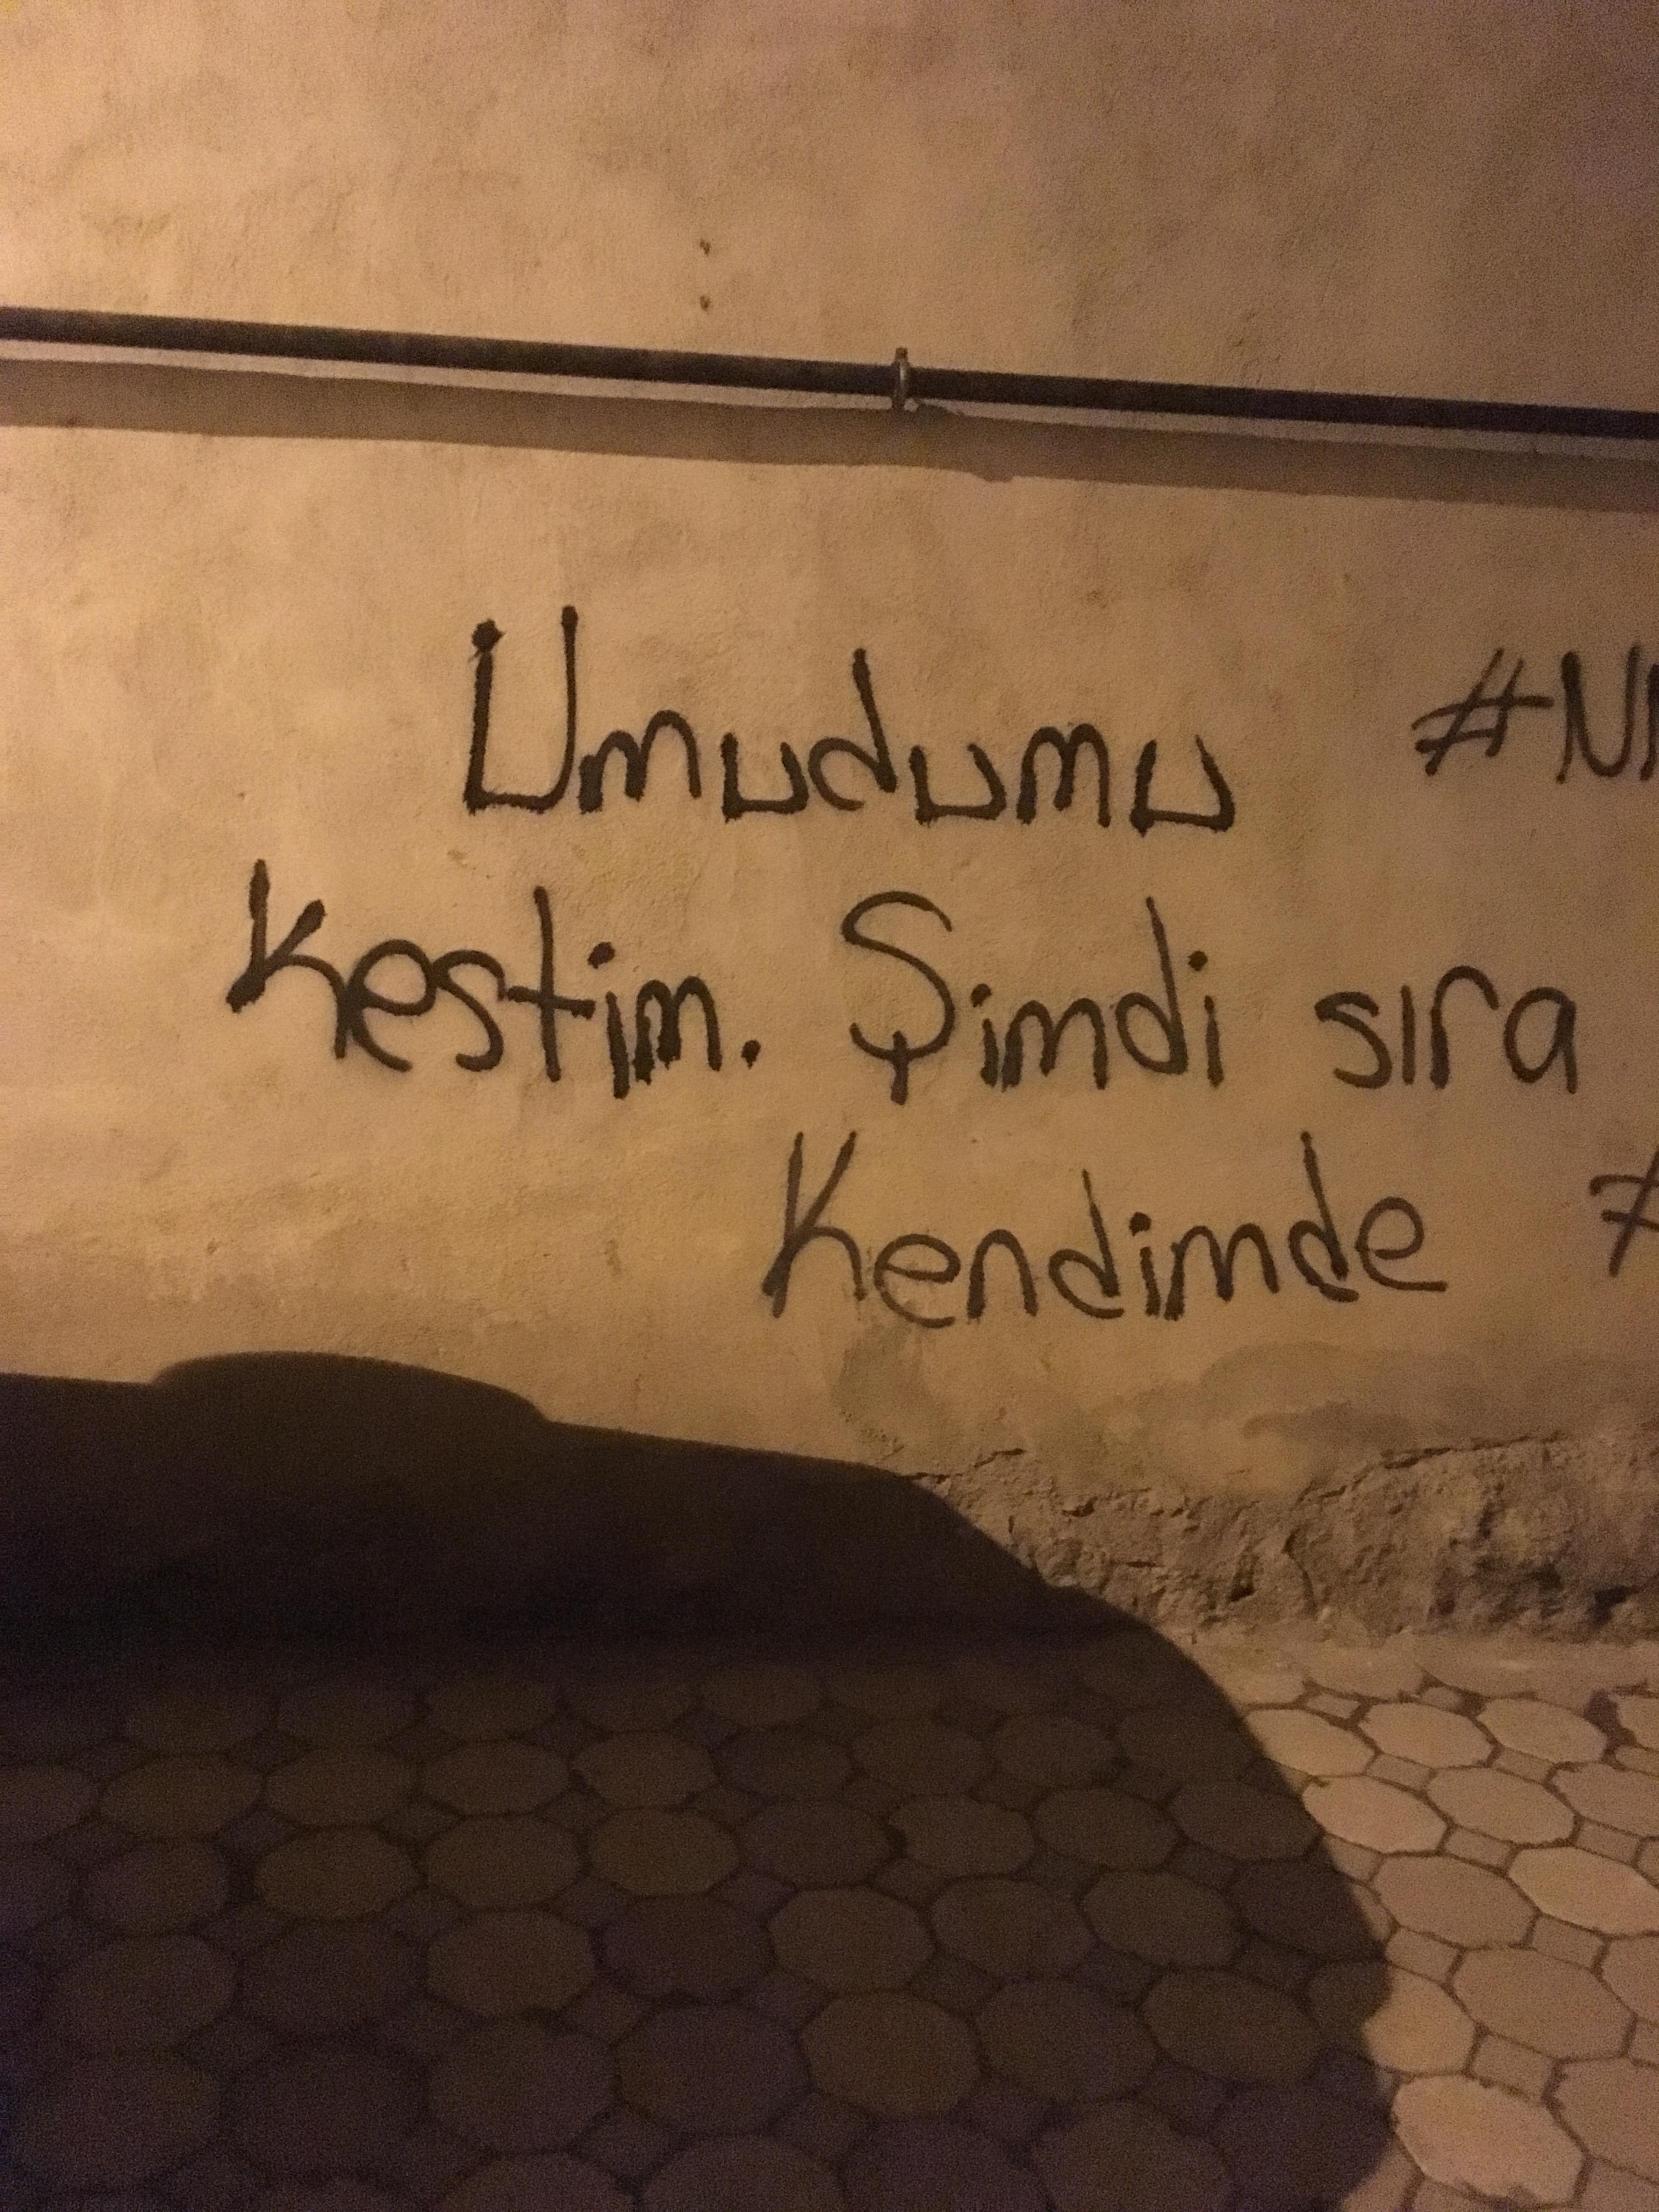 Umudumu
Kestim. Şimdi sıra
Kendimde